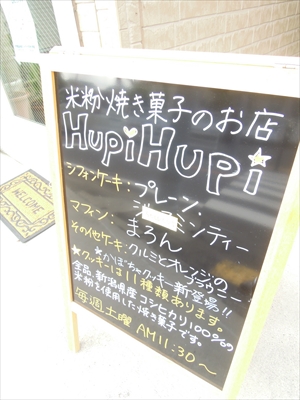 米粉焼き菓子のお店
HupiHupi
シフォンケーキ：プレーン、
ミンティー
マフィン：まろん
その他ケーキ：クルミとオレンジのブラウニー
★かぼちゃクッキー新登場!!
★クッキーは11種類あります。
全品新潟県産コシヒカリ100%の
米粉を使用した焼き菓子です。
毎週土曜 AM11:30～
WELCOME